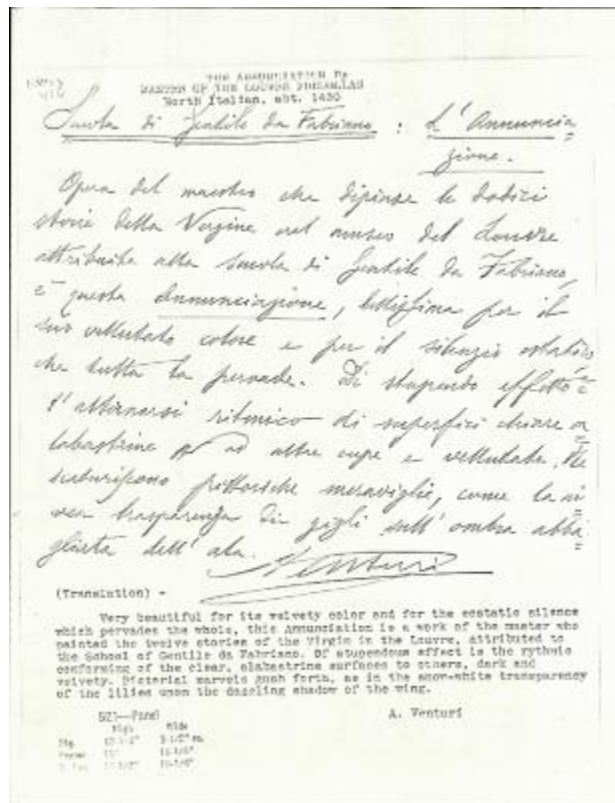 THE ANNUNCIATION By
MASTER OF THE LOUVRE PREDELLAS
North Italian, abt. 1430
Scuola di Gentile da Fabriano : L'Annuncia=
zione.
Opera del maestro che dipinse le dodici
storie della Vergine nel museo del Louvre
attribuite alla scuola di Gentile da Fabriano,
è questa Annunciazione, bellissima per il
suo vellutato colore e per il silenzio estatico
che tutta la pervade. Di stupendo effetto è
l'attenersi ritmico di superfici chiare a=
labastrine ad altre cupe e vellutate. Ne
scaturiscono pittoriche meraviglie, come la ni=
vea trasparenza di gigli sull'ombra abba=
gliata dell'ala.
A Venturi
(Translation) -
Very beautiful for its velvety color and for the ecstatic silence
which pervades the whole, this Annunciation is a work of the master who
painted the twelve stories of the Virgin in the Louvre, attributed to
the School of Gentile da Fabriano. Of stupendous effect is the rythmic
conforming of the clear, alabastrine surfaces to others, dark and
velvety. Pictorial marvels gush forth, as in the snow-white transparency
of the lilies upon the dazzling shadow of the wing.
A. Venturi
Panel
High Wide